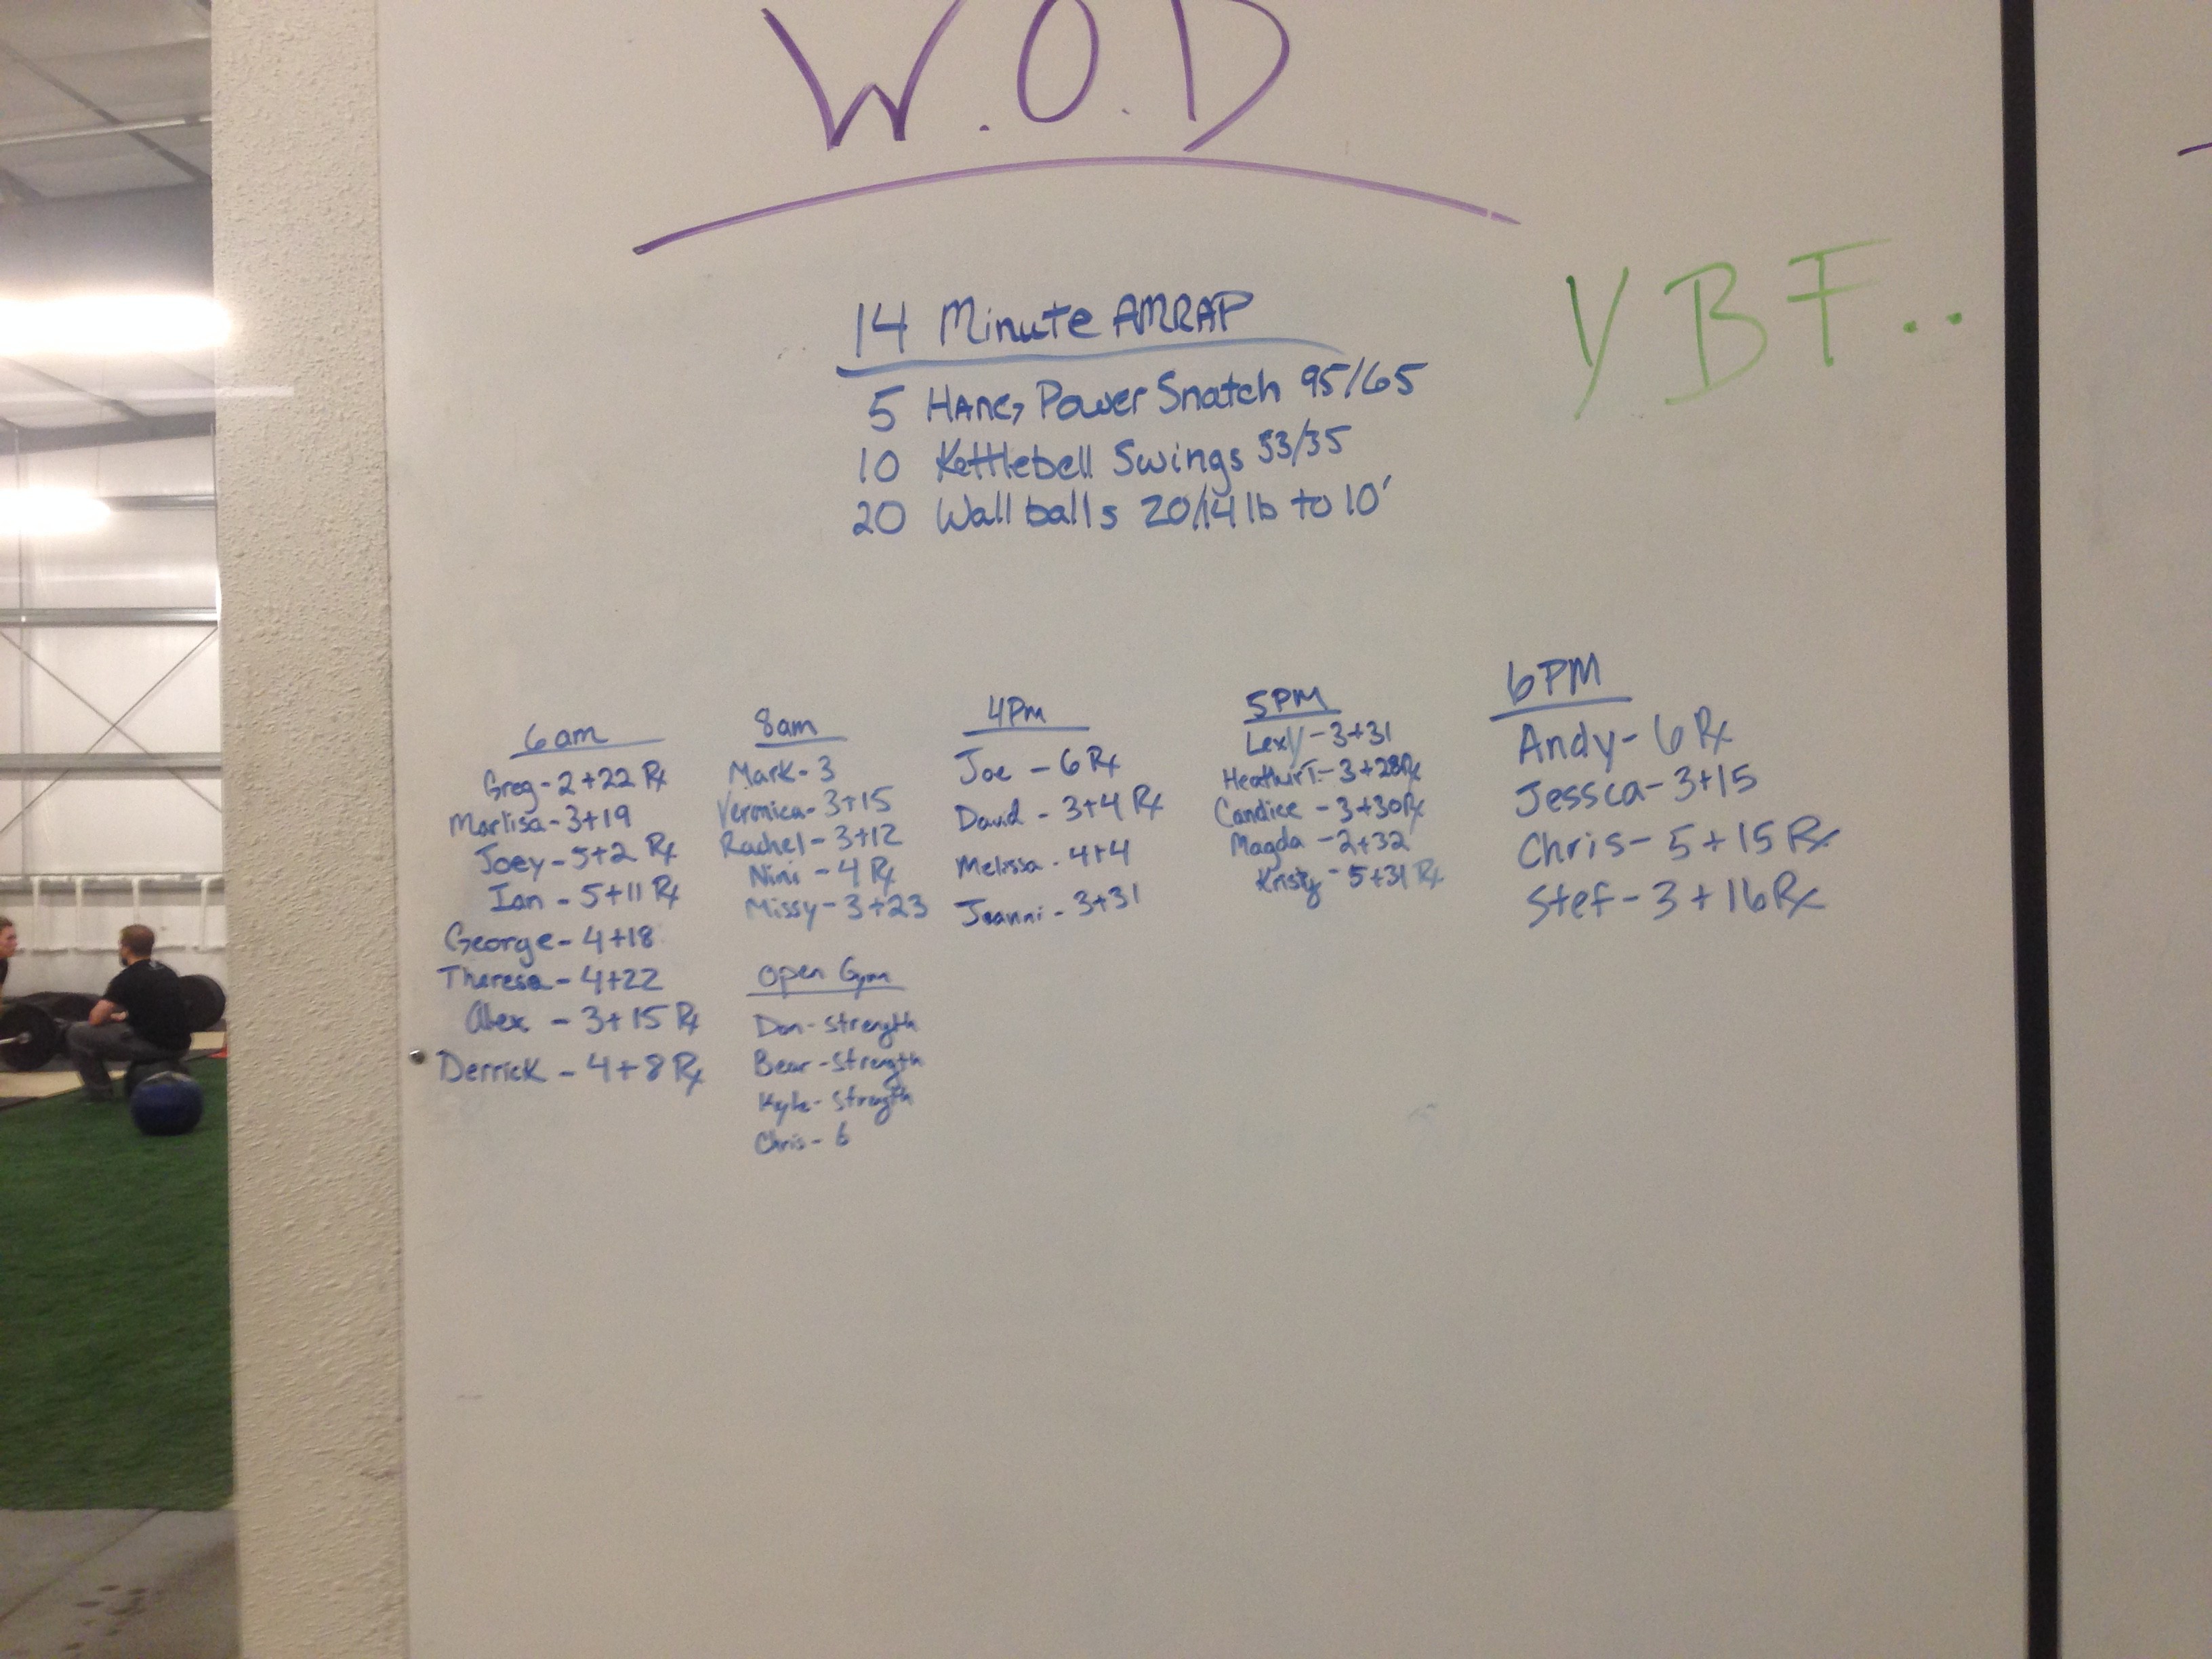 W.O.D
14 Minute AMRAP
5 Hang Power Snatch 95/65
10 Kettlebell Swings 53/35
20 Wall balls 20/14 lb to 10'
YBF..
6am
Greg - 2+22 Rx
Marlisa - 3+19
Joey - 5+2 Rx
Ian - 5+11 Rx
George - 4+18
Theresa - 4+22
Alex - 3+15 Rx
Derrick - 4+8 Rx
8am
Mark - 3
Veronica - 3+15
Rachel - 3+12
Nini - 4 Rx
Missy - 3+23
Open Gym
Don - Strength
Bear - Strength
Kyle - Strength
Chris - 6
4PM
Joe - 6 Rx
David - 3+4 Rx
Melissa - 4+4
Jeanni - 3+31
5PM
Lexy - 3+31
Heathir T. - 3+28Rx
Candice - 3+30Rx
Magda - 2+32
Kristy - 5+31 Rx
6PM
Andy - 6 Rx
Jessca - 3+15
Chris - 5+15 Rx
Stef - 3+16 Rx